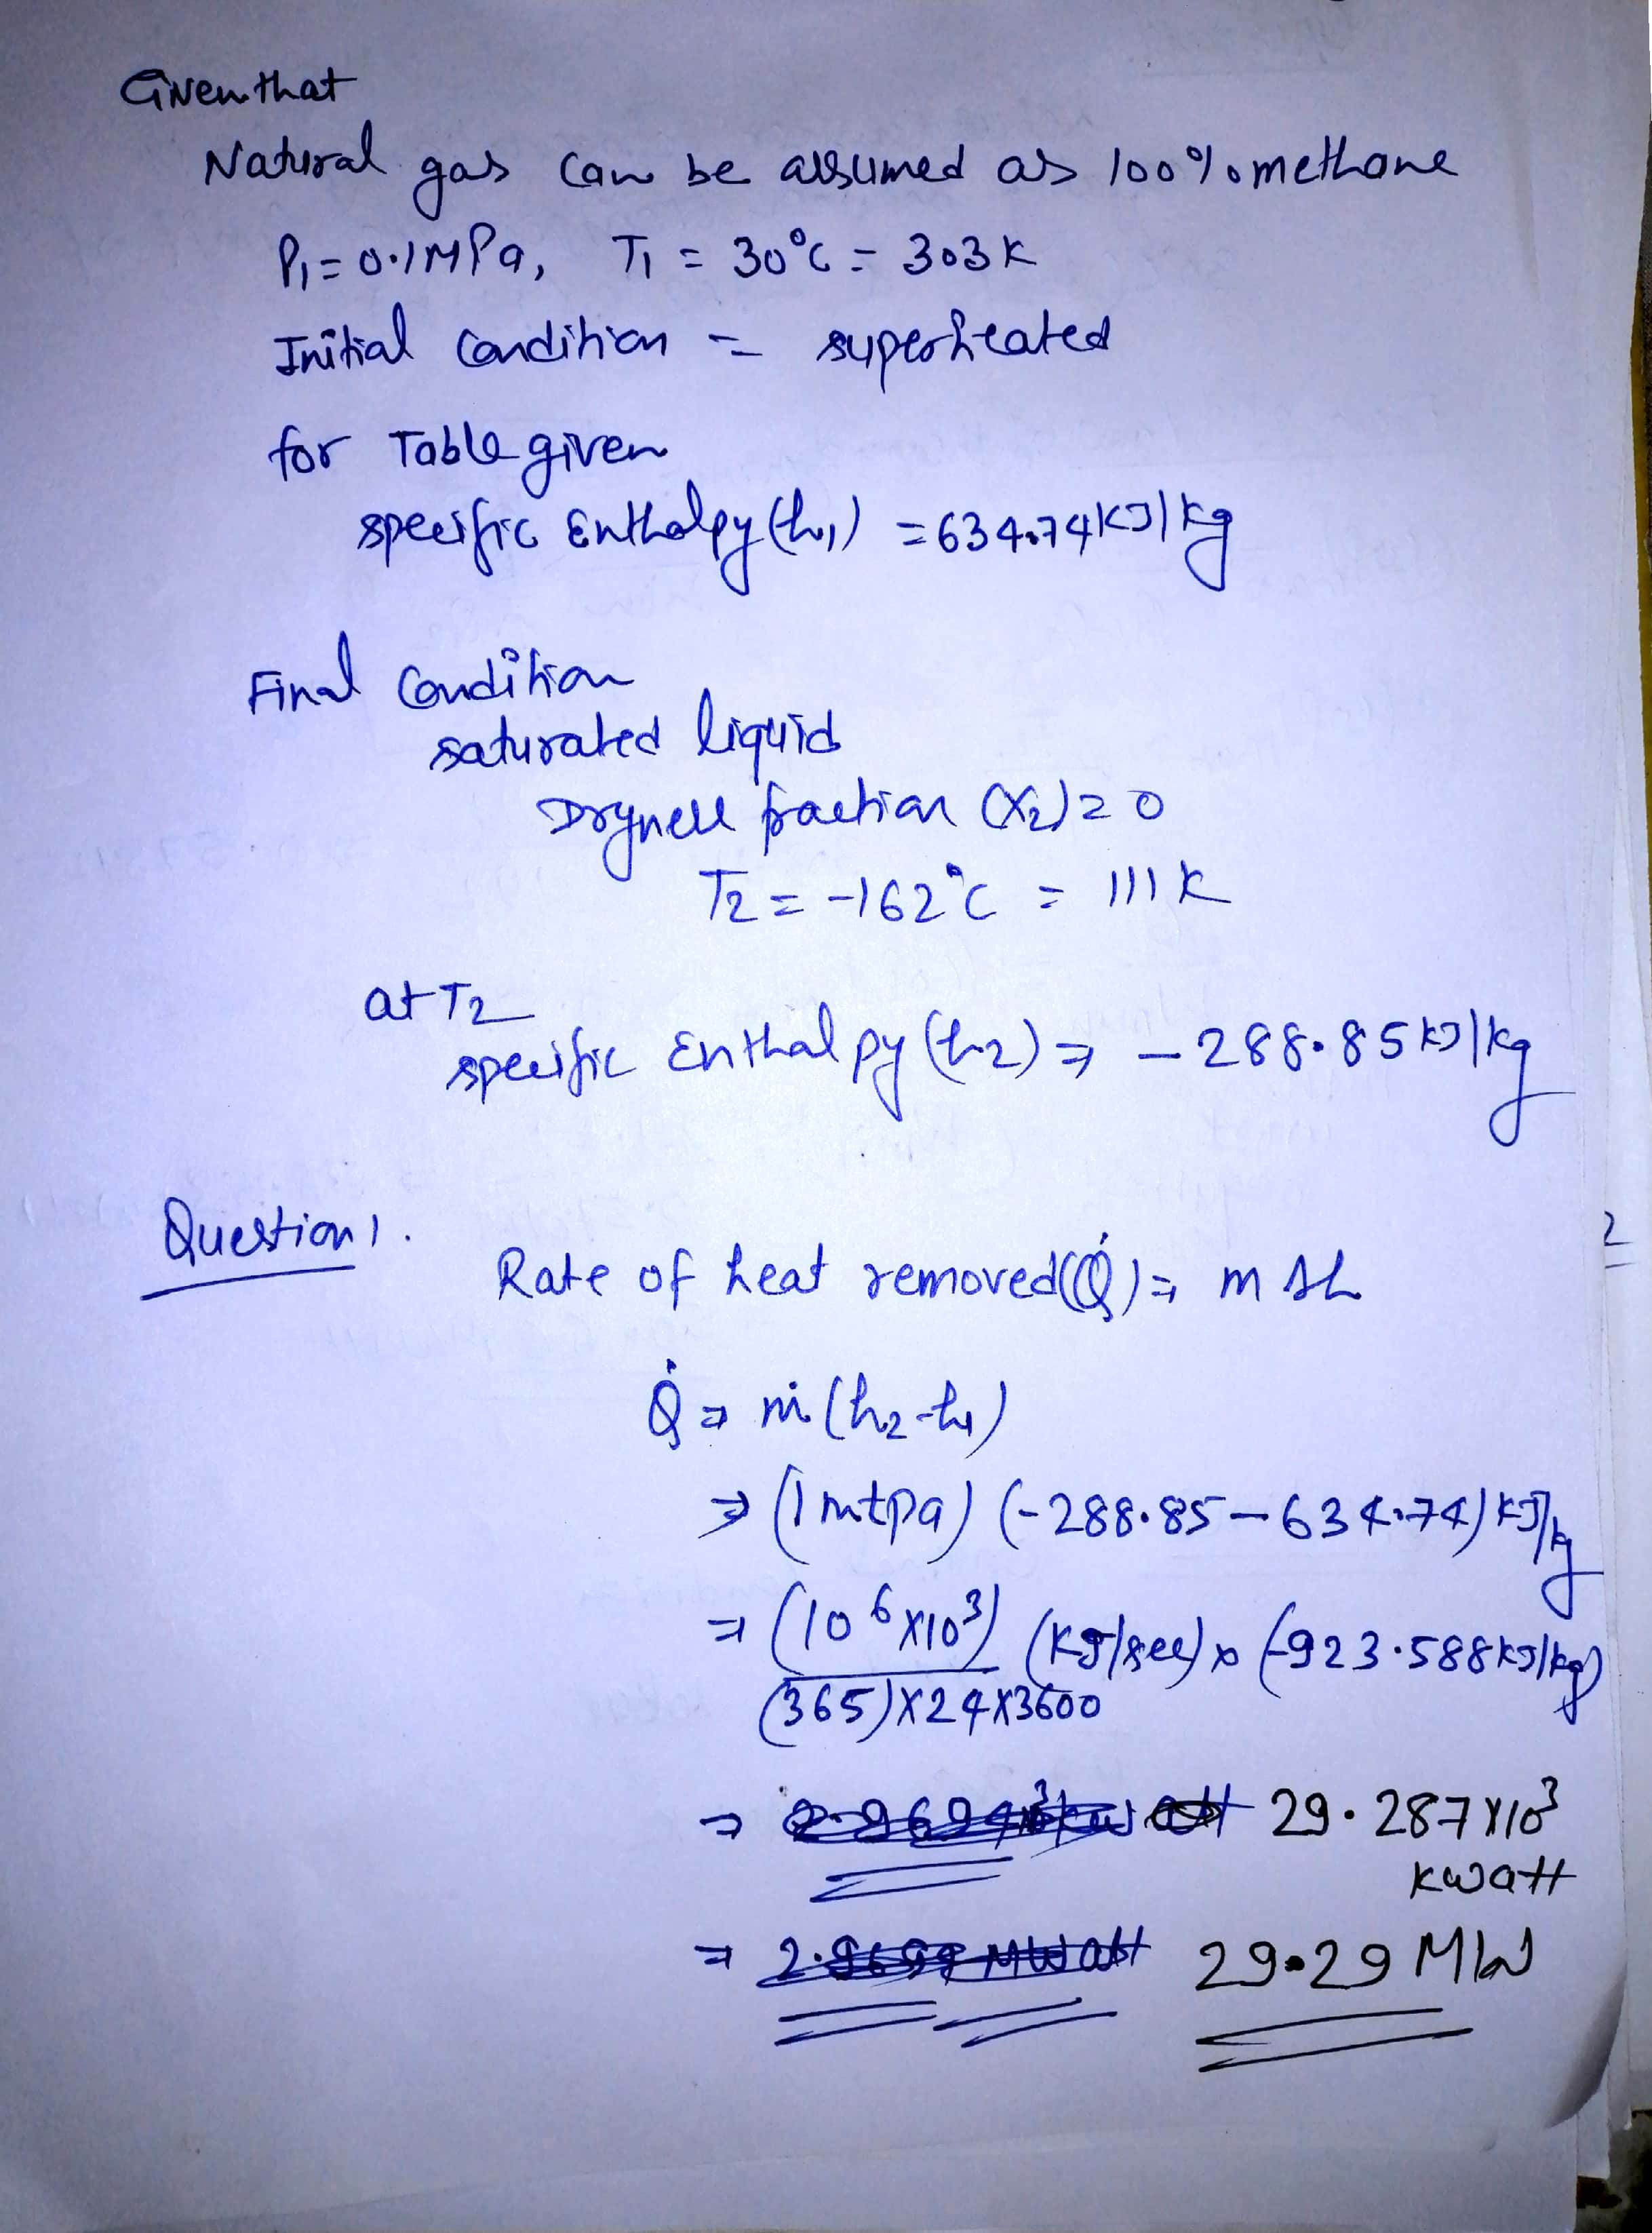 Given that
Natural gas can be assumed as 100% methane
P₁ = 0.1MPa, T₁ = 30°C = 303K
Initial Condition = superheated
for Table given
specific Enthalpy (h₁) = 634.74 KJ/kg
Final Condition
saturated liquid
Dryness fraction (x₂) = 0
T₂ = -162°C = 111K
at T₂
specific Enthalpy (h₂) ⇒ -288.85 KJ/kg
Question 1.
Rate of heat removed (Q̇) ⇒ m Δh
Q̇ ⇒ ṁ (h₂-h₁)
⇒ (1 mtpa) (-288.85 - 634.74) KJ/kg
⇒ (10⁶ x 10³) / (365) x 24 x 3600 (Kg/sec) x (-923.588 KJ/kg)
⇒ 29.287 x 10³
Kwatt
⇒ 29.29 MW
2